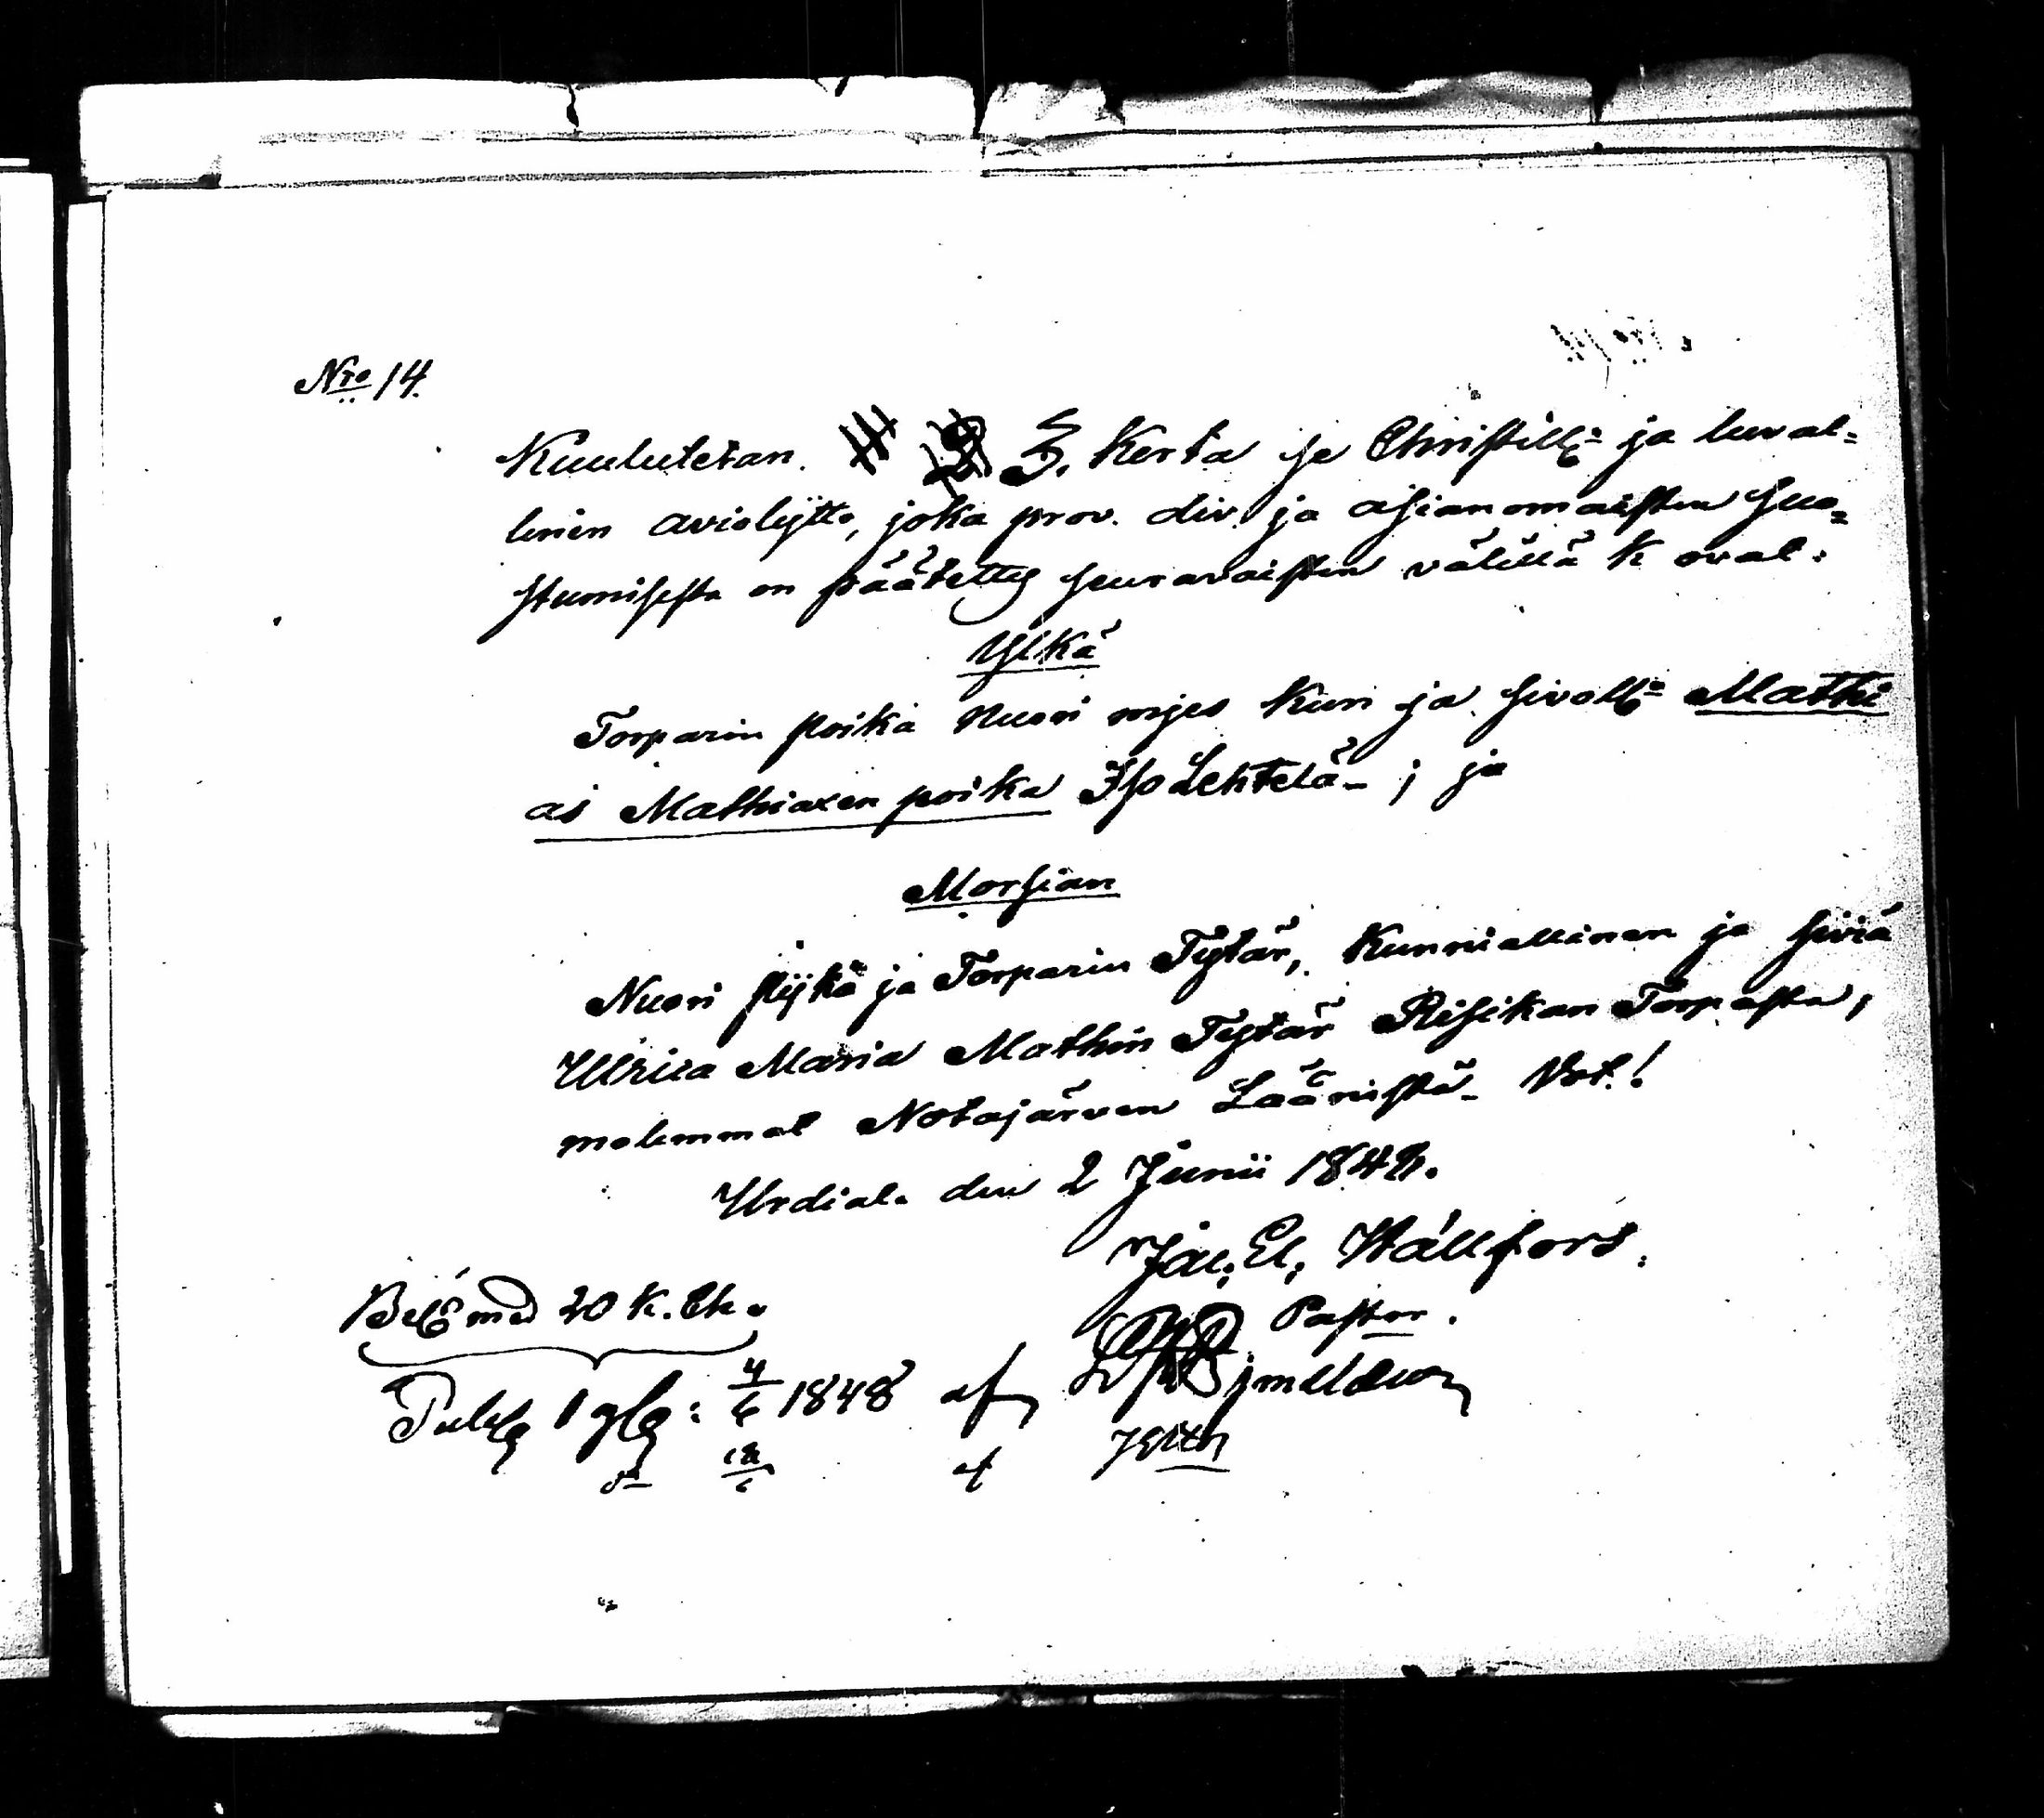 Nro 14.
Kuulutetan. 3. Kerta se Christill:= ja luval=
linen aviolijtto, joka prov. div. ja asianomaisten suo=
stumisesta on päätetty seuravaisten välillä k oval:
Ylkä
Torparin poika Nuori mjes Kun ja sivoll:= Mathi
as Mathiaxen poika Iso Lehtelä- ; ja
Morsian
Nuori pijka ja Torparin Tytär, Kunniallinen ja siviä
Ulrica Maria Mathin Tytär Risikan Torpasta,
molemmat Notajärven Läänistä- Vot.!
Urdiala den 2 Junii 1848.
Jac. El. Hällfors.
Bet med 20 K. Ek.
Pastor.
Publ 1 g: 4/6 1848 af
18/6 af